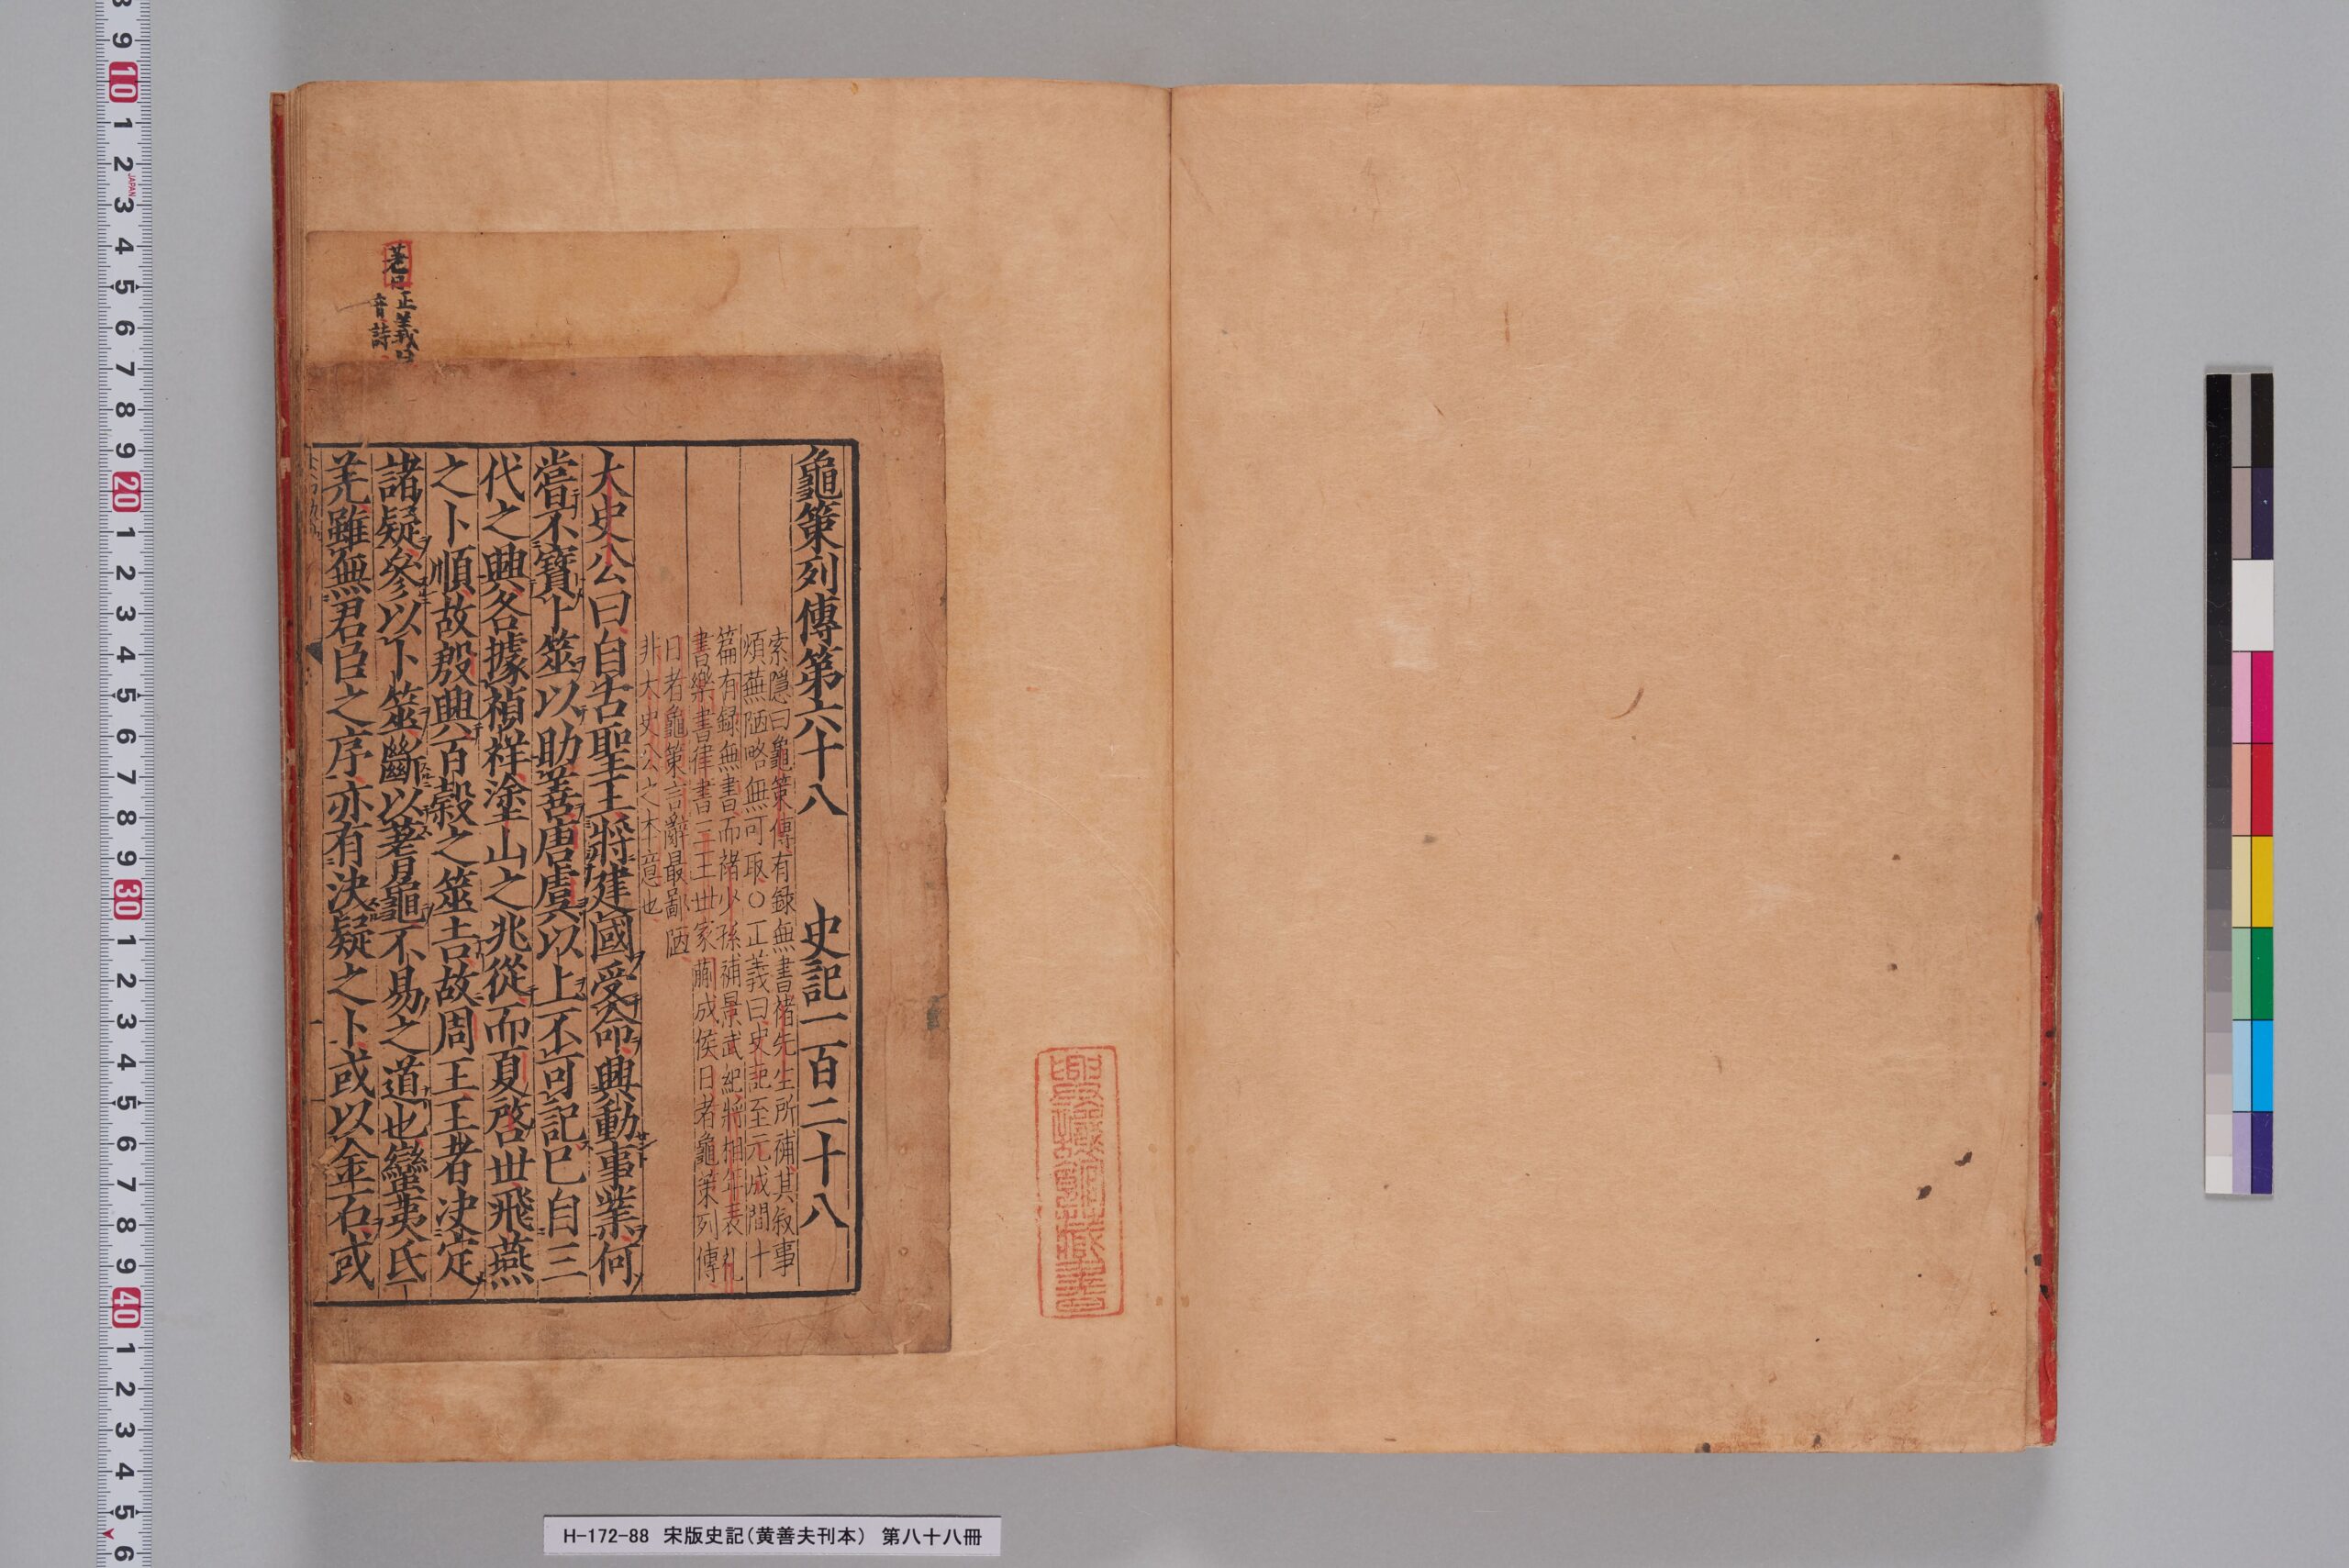 龜策列傳第六十八　史記一百二十八
索隱曰龜策傳有録無書褚先生所補其叙事
煩蕪陋略無可取○正義曰史記至元成間十
篇有録無書而褚少孫補景武紀將相年表礼
書樂書律書三王世家蒯成侯日者龜策列傳
日者龜策言辭最鄙陋
非大史公之本意也
大史公曰自古聖王將建國受命興動事業何
嘗不寶卜筮以助善唐虞以上不可記已自三
代之興各據禎祥塗山之兆從而夏啓世飛燕
之卜順故殷興百穀之筮吉故周王王者決定
諸疑參以卜筮斷以蓍龜不易之道也蠻夷氐
羌雖無君臣之序亦有決疑之卜或以金石或
蓍正義曰
音詩
H-172-88 宋版史記（黄善夫刊本） 第八十八冊
JAPAN